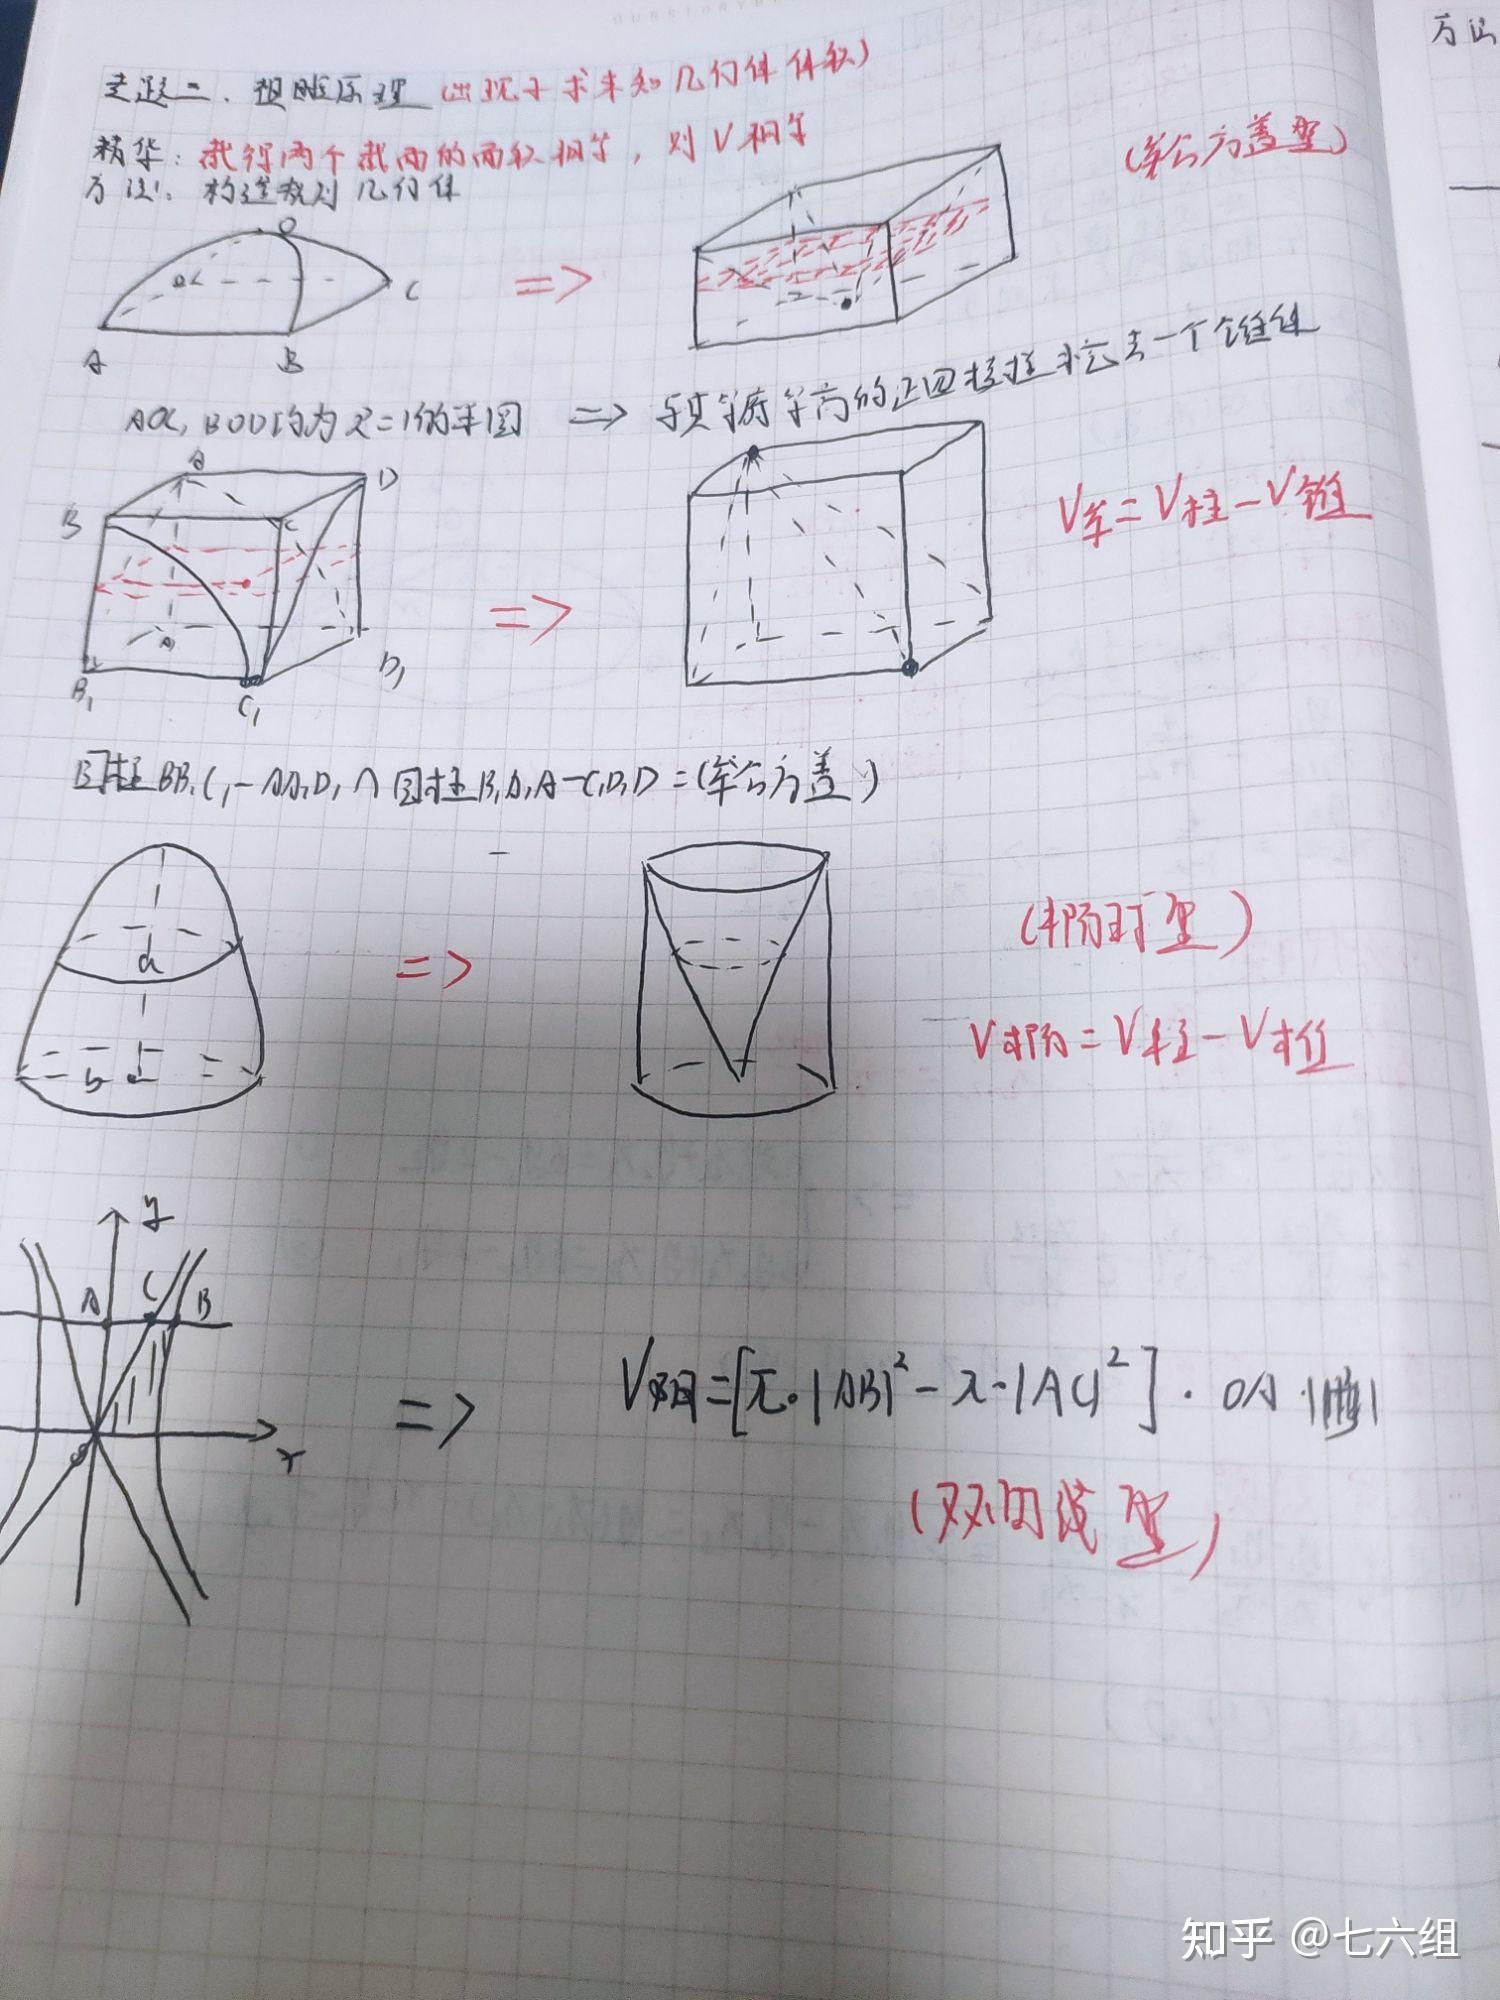 专题二、祖暅原理(出现于求未知几何体体积)
精华:截得两个截面的面积相等,则V相等
方法:构造规则几何体
(牟合方盖型)
O
D
C
A
B
=>
AOC,BOD均为R=1的半圆 => 与其等底等高的正四棱柱挖去一个锥体
A
D
B
C
A1
B1
C1
D1
=>
V牟=V柱-V锥
圆柱BB1C1-AA1D1∩圆柱B1A1A-C1D1D=(牟合方盖)
a
b
=>
(椭球型)
V椭=V柱-V锥
y
A
C
B
O
x
=> V双曲=[π·|AB|²-π·|AC|²]·OA
(双曲线型)
方法
知乎 @七六组